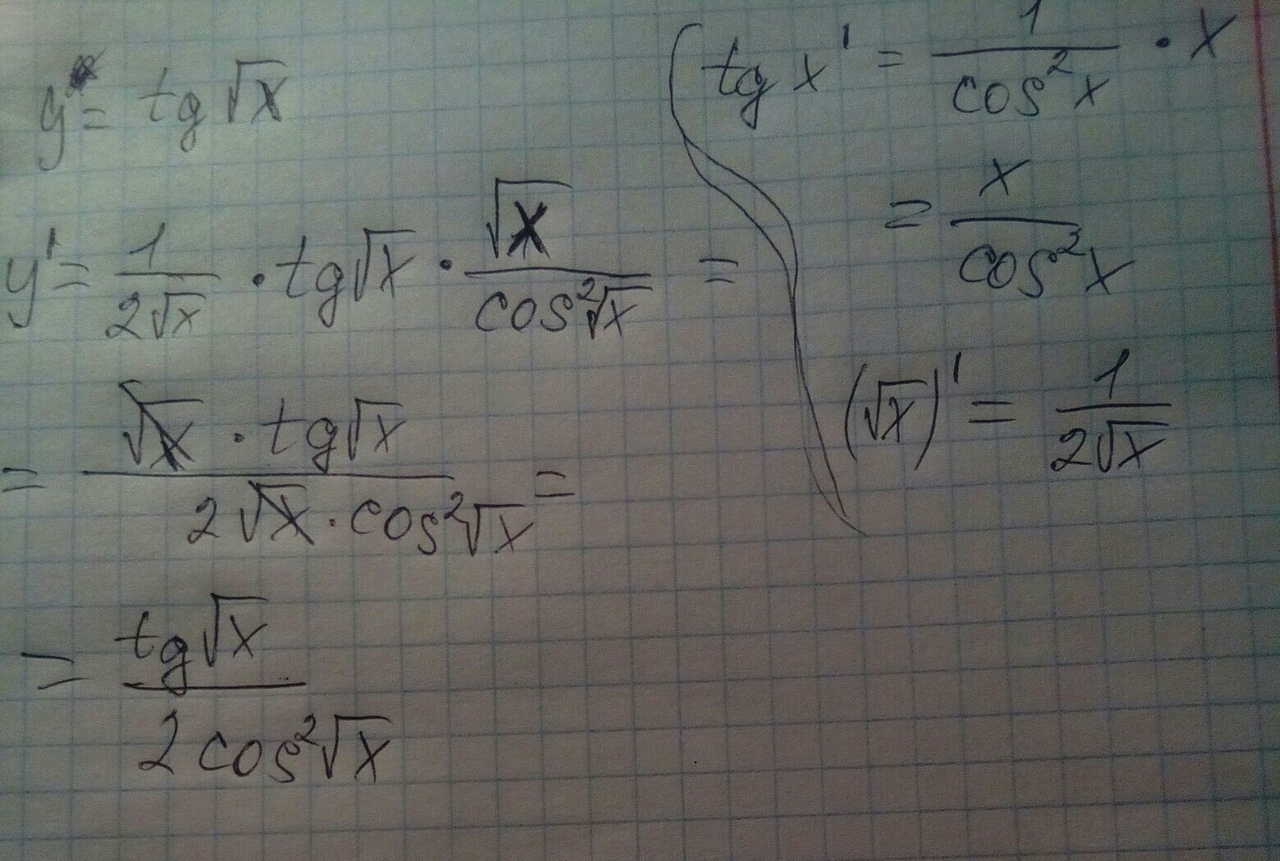 y = tg√x
y' = 1/(2√x) · tg√x · √x/(cos²√x) =
= (√x · tg√x)/(2√x · cos²√x) =
= tg√x/(2cos²√x)
tg x' = 1/(cos²x) · x
= x/(cos²x)
(√x)' = 1/(2√x)